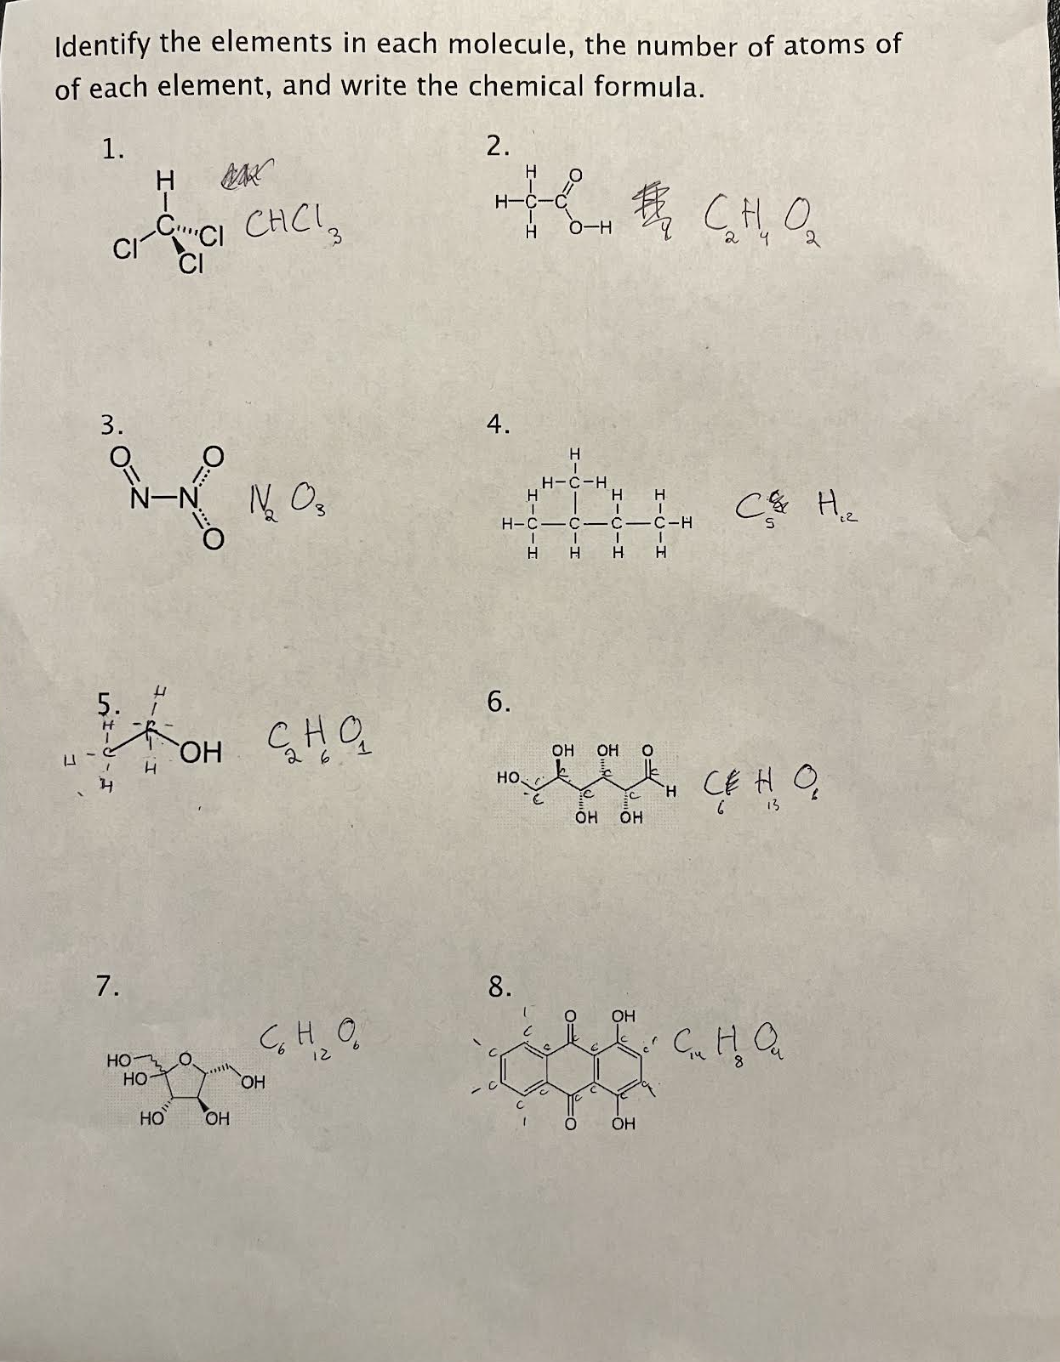 Identify the elements in each molecule, the number of atoms of
of each element, and write the chemical formula.
1.
H
C
Cl
Cl
Cl
CHCl3
2.
H O
H-C-C
H O-H
C2H4O2
3.
O O
N-N
O
N2O3
4.
H
H-C-H
H H H
H-C-C-C-C-H
H H H H
C5 H12
5.
H
H C
H-C OH
H H
C2H6O1
6.
OH OH O
HO C C C
C C C H
OH OH
C6 H13 O6
7.
HO O
HO OH
HO OH
C6 H12 O6
8.
O OH
C C C C C
C C C
C C C C C C
O OH
C14 H8 O4